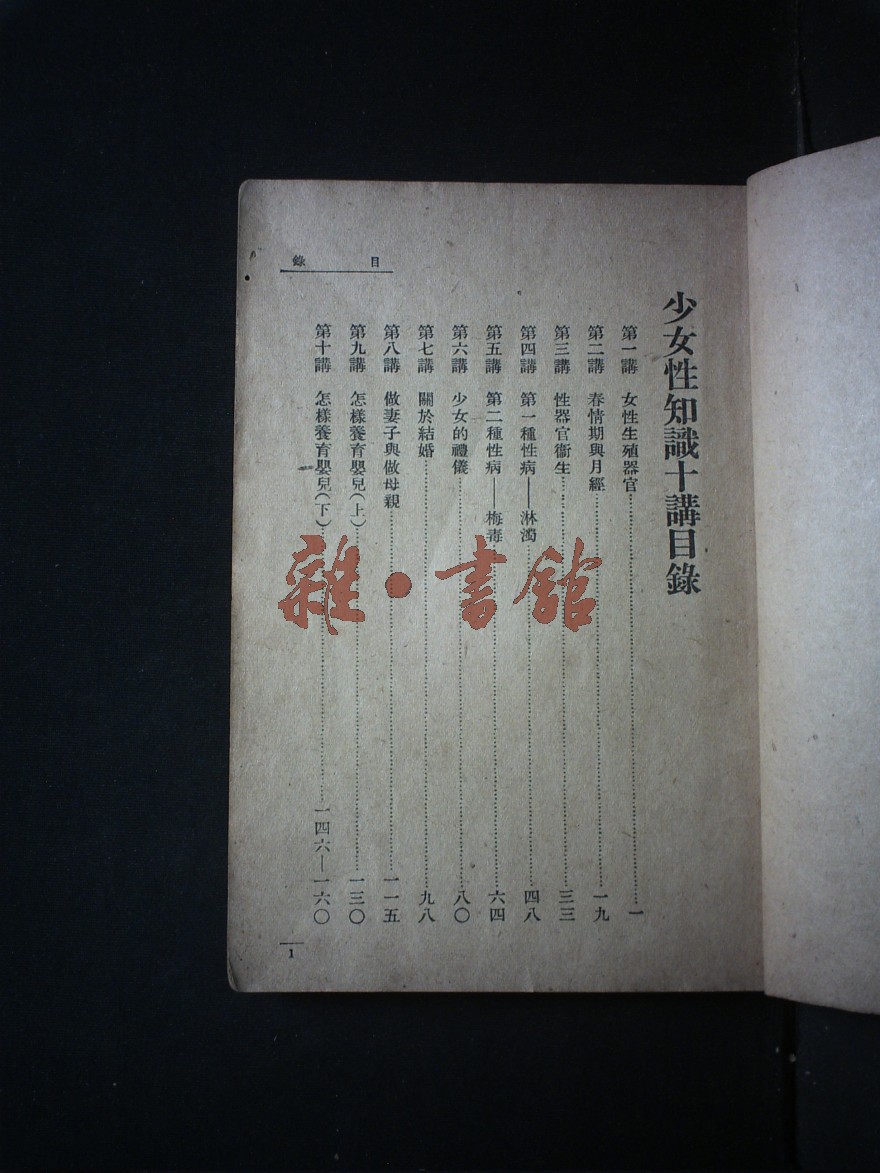 少女性知識十講目錄
第一講 女性生殖器官……一
第二講 春情期與月經……一九
第三講 性器官衞生……三三
第四講 第一種性病——淋濁……四八
第五講 第二種性病——梅毒……六四
第六講 少女的禮儀……八〇
第七講 關於結婚……九八
第八講 做妻子與做母親……一一五
第九講 怎樣養育嬰兒(上)……一三〇
第十講 怎樣養育嬰兒(下)……一四六—一六〇
目錄
1
雜·書館